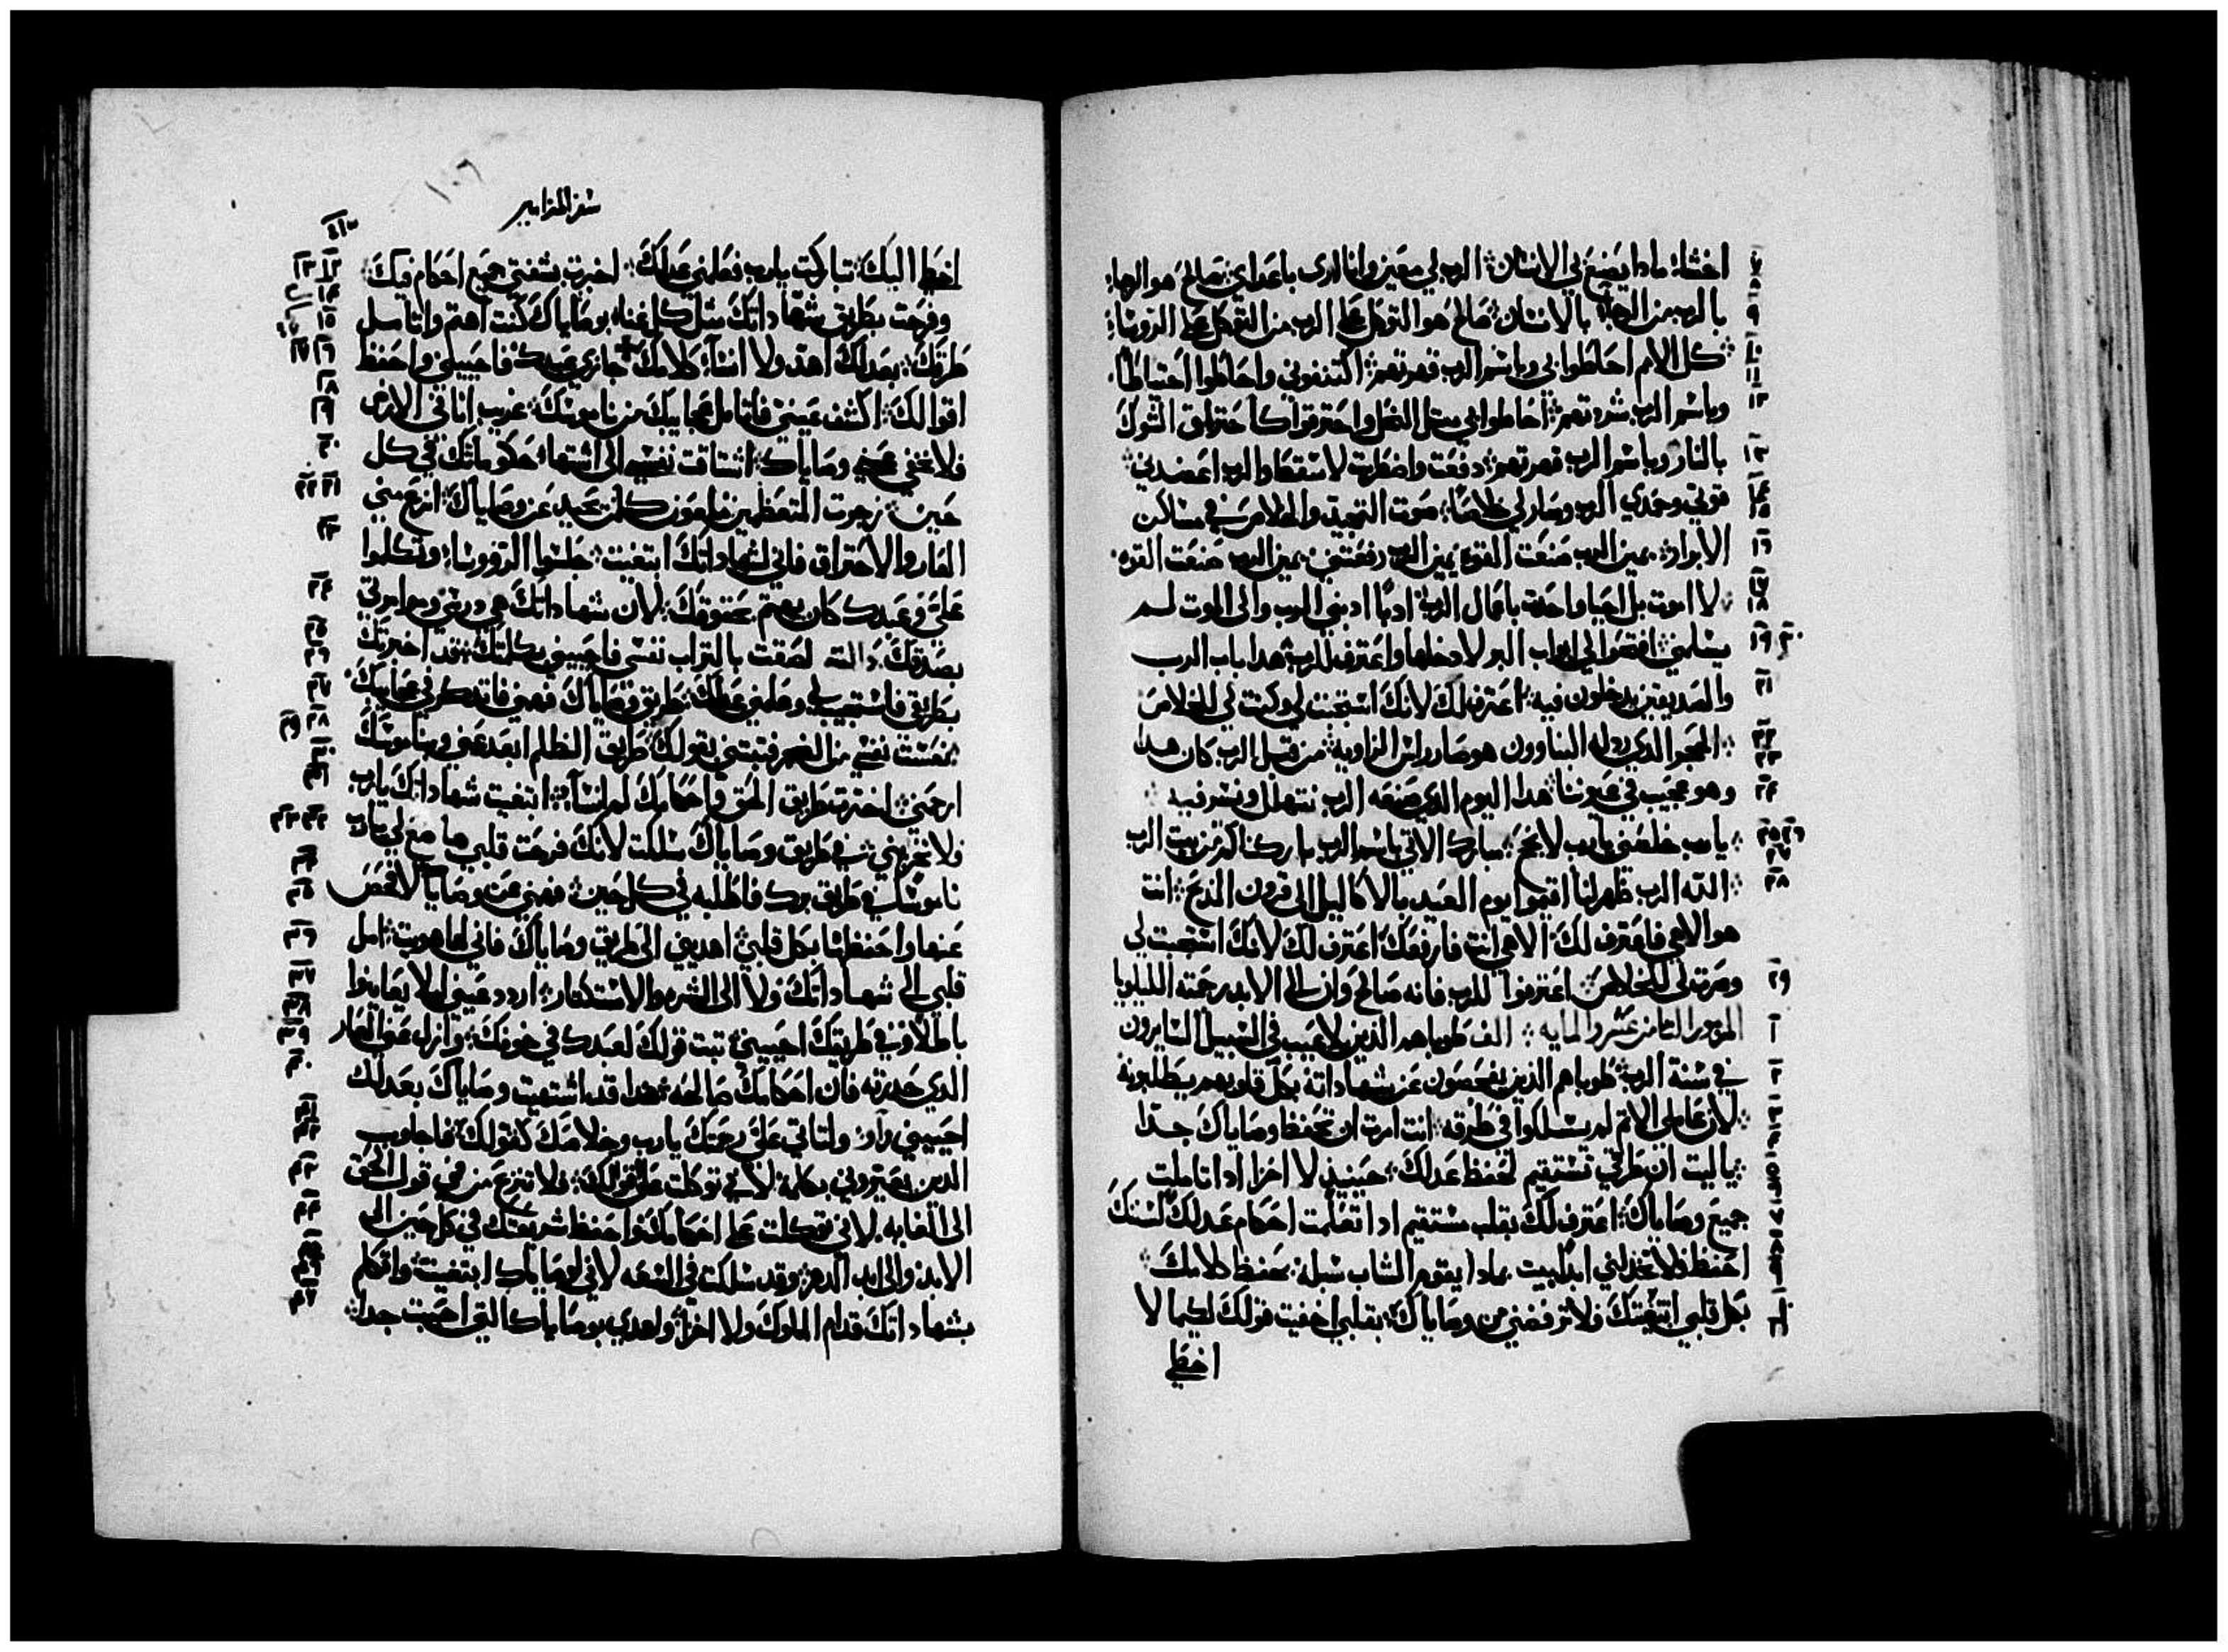 اخشا؛ ماذا يصنع بي الانسان؛ الرب لي معين وانا ارى باعداي؛ صالح هو الرجا؛
بالرب من الرجا بالانسان؛ صالح هو التوكل على الرب من التوكل على الروسا؛
كل الامم احاطوا بي وباسم الرب قهرتهم؛ اكتنفوني واحاطوا احتياطًا
وباسم الرب شردتهم؛ احاطوا بي مثل النحل واحترقوا كاحتراق الشوك
بالنار وباسم الرب قهرتهم؛ دفعت واضطربت لاسقط والرب اعضدني
قوتي وحمدي الرب وصار لي خلاصًا؛ صوت التهجيد والخلاص في مساكن
الابرار؛ يمين الرب صنعت القوه يمين الرب رفعتني يمين الرب صنعت القوه
لا اموت بل احيا واحدث باعمال الرب؛ ادبًا ادبني الرب والى الموت لم
يسلمني؛ افتحوا لي ابواب البر لادخلها واعترف للرب؛ هذا باب الرب
والصديقين يدخلون فيه؛ اعترف لك لانك استجبت لي وكنت لي للخلاص
الحجر الذي رذله البناوون هو صار راس الزاويه؛ من قبل الرب كان هذا
وهو عجيب في عيوننا؛ هذا اليوم الذي صنعه الرب نتهلل ونسر فيه
يا رب خلصني يا رب لانجح؛ مبارك الاتي باسم الرب باركناكم من بيت الرب
الله الرب ظهر لنا اقيموا يوم العيد بالاكاليل الى قرون المذبح؛ انت
هو الاهي فاعترف لك الاهي انت فارفعك اعترف لك لانك استجبت لي
وصرت لي للخلاص؛ اعترفوا للرب فانه صالح وان الى الابد رحمته الليلويا
المزمور الثامن عشر والمايه؛ الف طوباهم الذين بلا عيب في السبيل السايرون
في سنة الرب؛ طوباهم الذين يفحصون عن شهاداته بكل قلوبهم يطلبونه
لان عاملي الاثم لم يسلكوا في طرقه؛ انت امرت ان تحفظ وصاياك جدًا
يا ليت ان طرقي تستقيم لحفظ عدلك؛ حينيذ لا اخزا اذا تاملت
جميع وصاياك؛ اعترف لك بقلب مستقيم اذا تعلمت احكام عدلك لسننك
احفظ فلا تخذلني ابدًا بيت بماذا يقوم الشاب سبله بحفظ كلامك
بكل قلبي ابتغيتك فلا ترفضني من وصاياك؛ بقلبي اخفيت قولك لكيما لا
اخطي
سفر المزامير
١٠٦
اخطا اليك؛ تباركت يا رب فعلمني عدلك؛ اخبرت بشفتي جميع احكام فيك
وفرحت بطريق شهاداتك مثل كل غناء؛ بوصاياك كنت اهتم واتامل
طرقك؛ بعدلك اهذ ولا انسا كلامك جازي عبدك فاحييني واحفظ
اقوالك؛ اكشف عيني فاتامل عجايبك من ناموسك؛ غريب انا في الارض
فلا تخفي عني وصاياك؛ اشتاقت نفسي الى اشتهاء حكوماتك في كل
حين؛ زجرت المتعظمين ملعون كل من يحيد عن وصاياك؛ انزع مني
العار والاحتراق فاني لشهاداتك ابتغيت؛ جلسوا الروسا وتكلموا
عليّ وعبدك كان يهتم بحقوقك؛ لان شهاداتك هي درسي وموامرتي
بصدقك دالته لصقت بالتراب نفسي فاحييني بكلمتك؛ قد اخبرتك
بطريقي فاستجيب لي وعلمني عدلك؛ طريق وصاياك فهمني فاتذكر في عجايبك
نعست نفسي من الضجر فثبتني بقولك طريق الظلم ابعد عني وبناموسك
ارحمني؛ اخترت طريق الحق واحكامك لم انسا؛ ابتغيت شهاداتك يا رب
فلا تخزيني؛ في طريق وصاياك سلكت لانك فرحت قلبي ها ضع لي يا رب
ناموسك في طريق برك فاطلبه في كل حين؛ فهمني عن وصاياك لافحص
عنها واحفظها بكل قلبي؛ اهديني الى طريق وصاياك فاني لها هويت؛ امل
قلبي الى شهاداتك ولا الى الشره والاستكثار؛ اردد عيني ليلا يعاينوا
باطلًا وفي طريقك احييني؛ ثبت قولك لعبدك في خوفك؛ وازل عني العار
الذي حذرته فان احكامك صالحه؛ هذا قد اشتهيت وصاياك بعدلك
احييني واو ولتاتي عليّ رحمتك يا رب وخلاصك كقولك؛ فاجاوب
الذين يعيروني بكلمة لاني توكلت على قولك؛ فلا تنزع من فمي قول الحق
الى الغايه لاني توكلت على احكامك؛ واحفظ شريعتك في كل حين الى
الابد والى ابد الدهر؛ وقد سلكت في السعه لاني لوصاياك ابتغيت؛ واتكلم
بشهاداتك قدام الملوك ولا اخزا؛ ولهجي بوصاياك التي احببت جدا؛